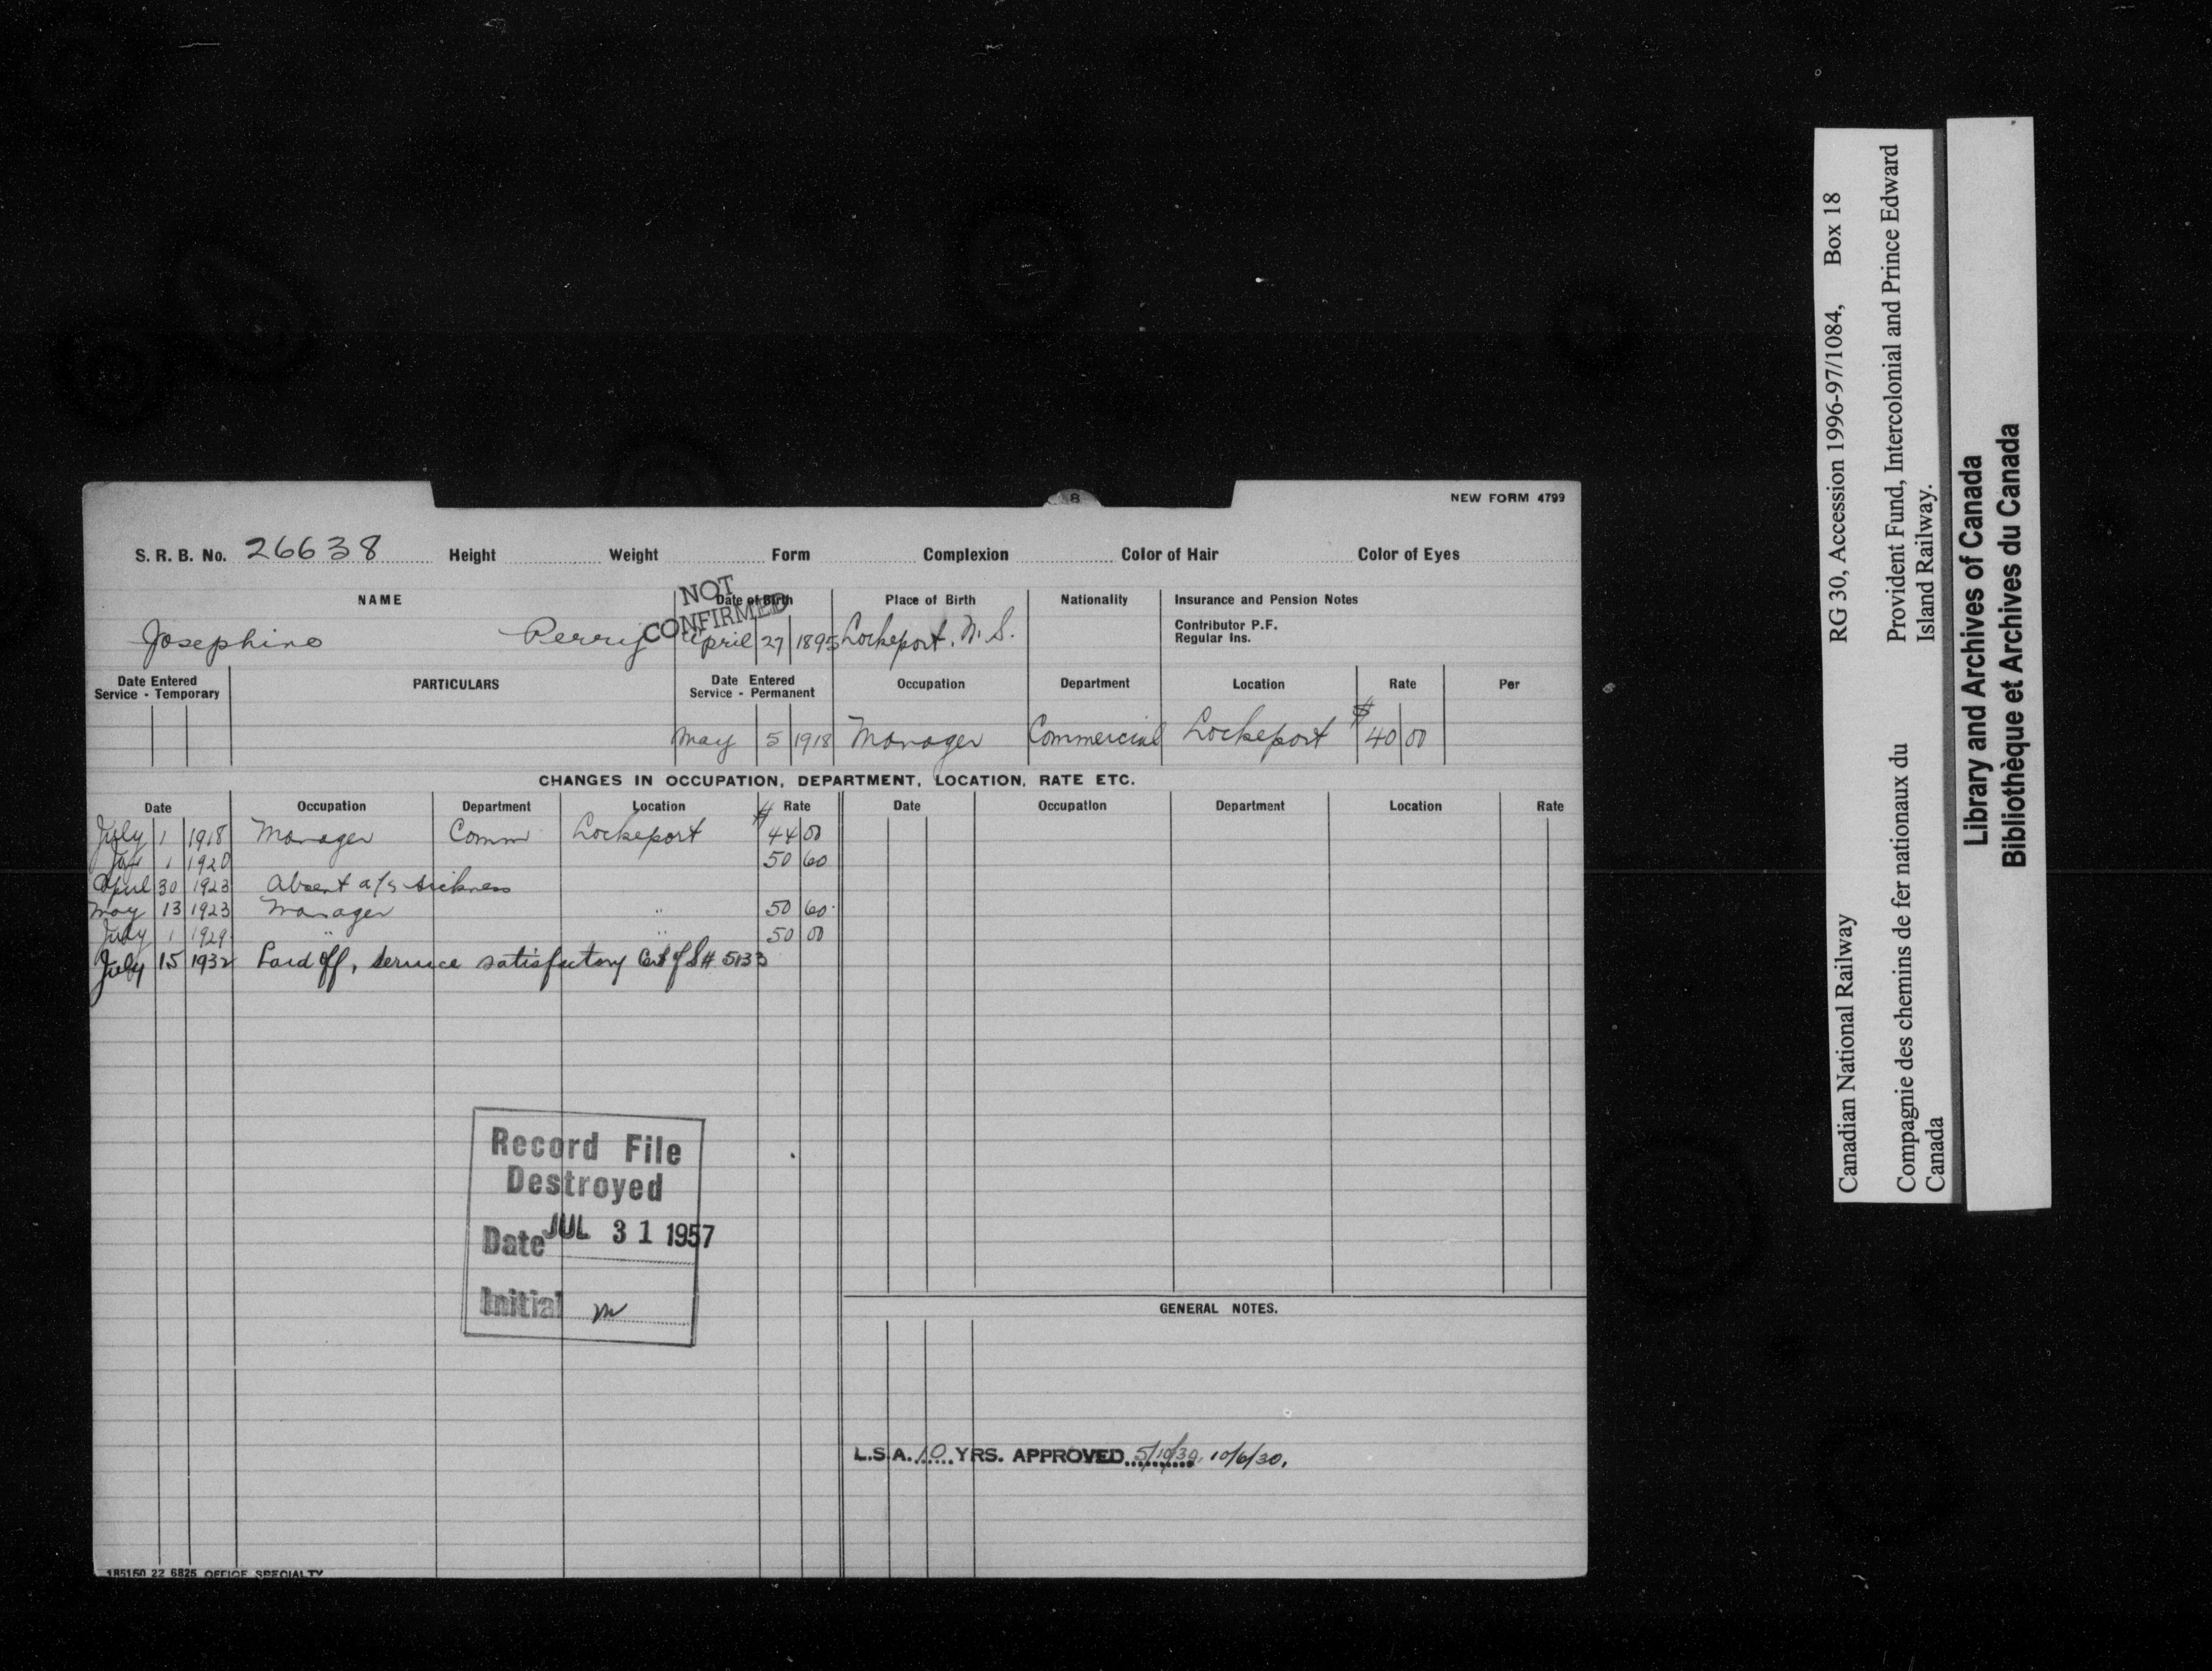 8
NEW FORM 4799
S. R. B. No. 26638 Height Weight Form Complexion Color of Hair Color of Eyes
NAME Date of Birth Place of Birth Nationality Insurance and Pension Notes
NOT CONFIRMED
Contributor P.F.
Regular Ins.
Josephine Perry April 27 1895 Lockeport. N. S.
Date Entered Service - Temporary PARTICULARS Date Entered Service - Permanent Occupation Department Location Rate Per
May 5 1918 Manager Commercial Lockeport $ 40 00
CHANGES IN OCCUPATION, DEPARTMENT, LOCATION, RATE ETC.
Date Occupation Department Location Rate Date Occupation Department Location Rate
July 1 1918 Manager Comm Lockeport $ 44 00
Jan 1 1920 50 60
April 30 1923 Absent a/s sickness
May 13 1923 Manager " 50 60
July 1 1929 " " 50 00
July 15 1932 Laid off, service satisfactory Cert of S # 5133
Record File
Destroyed
Date JUL 31 1957
Initial
GENERAL NOTES.
L.S.A. 10 YRS. APPROVED 5/10/30, 10/6/30.
185160 22 6825 OFFICE SPECIALTY
Canadian National Railway RG 30, Accession 1996-97/1084, Box 18
Compagnie des chemins de fer nationaux du Canada
Provident Fund, Intercolonial and Prince Edward Island Railway.
Library and Archives of Canada
Bibliothèque et Archives du Canada